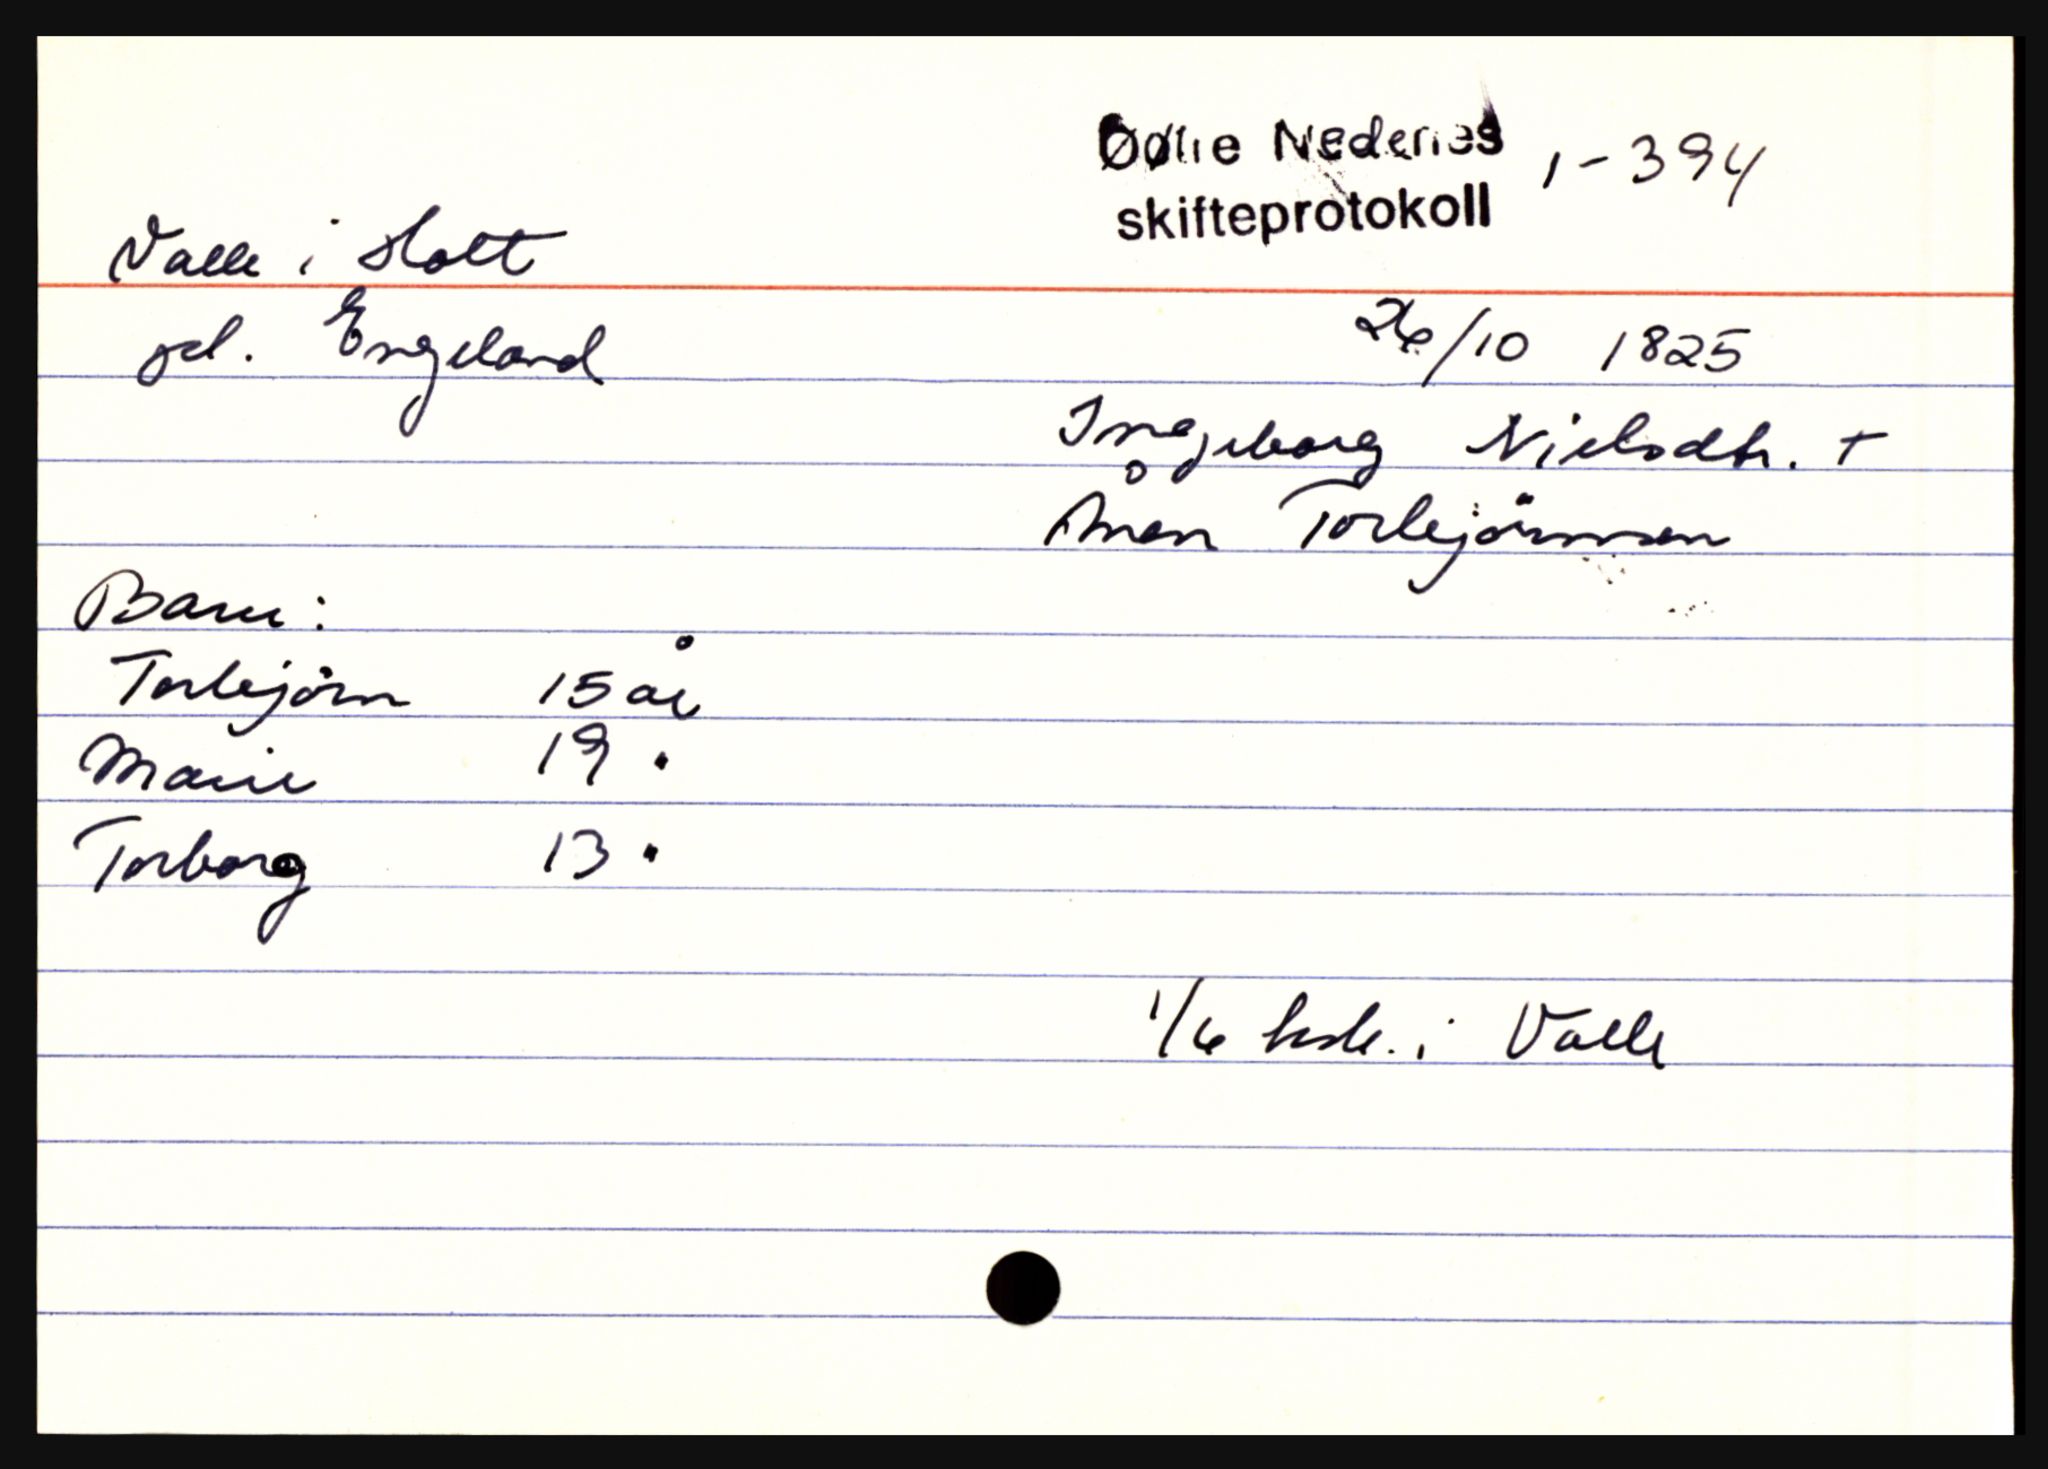 Østre Nedenes 1-394
skifteprotokoll
Valle i Holt
pl. Engeland
26/10 1825
Ingeborg Nielsdtr. +
Ånen Torbjörnsen
Barn:
Torbjörn 15 år
Marie 19 "
Torborg 13 "
1/6 hsk. i Valle